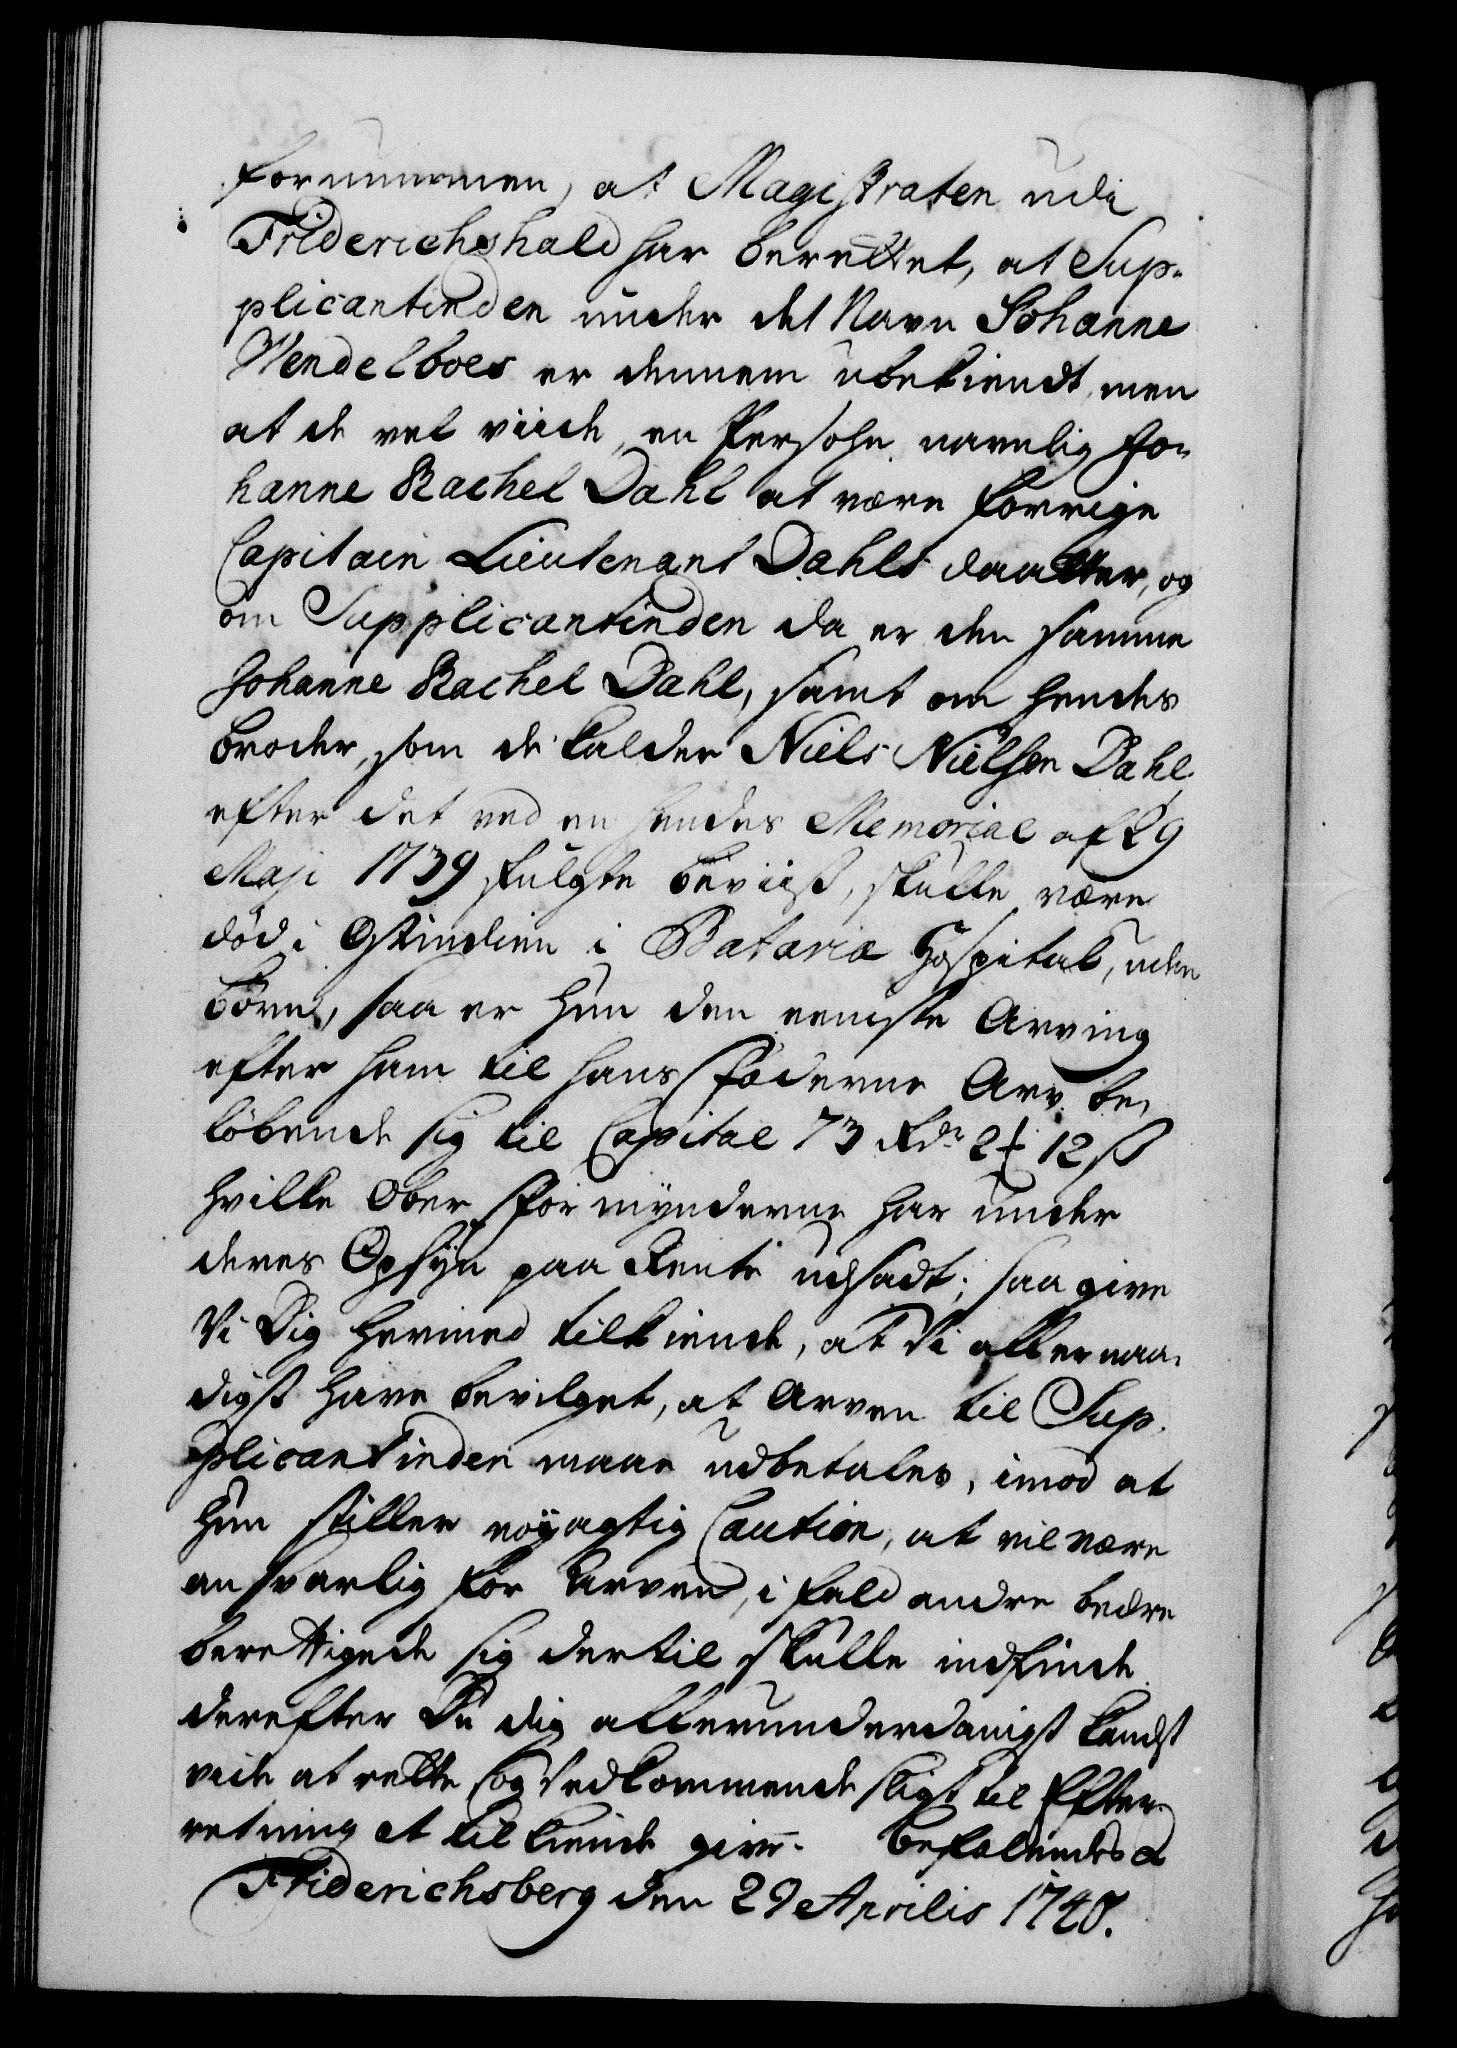 fornummen, at Magistraten udi
Friderichshald har berettet, at Sup-
plicantinden under det Navn Johanne
Wendelboes er dennem ubekiendt, men
at de vel viide, en Persohn navnlig Jo-
hanne Rachel Dahl at være forrige
Capitain Lieutenant Dahls daatter, og
om Supplicantinden da er den samme
Johanne Rachel Dahl, samt om hendes
broder, som de kalder Niels Nielsen Dahl,
efter det ved en hendes Memorial af 29
Maji 1739 fulgte beviis, skulle være
död i Ostindien i Batavia Hospital, uden
börn, saa er hun den eeneste Arving
efter ham til hans fæderne Arv, be-
löbende sig til Capital 73 Rdr 2 ₰ 12 ß
hvilke Ober Formynderne har under
deres Opsÿn paa Rente udsadt; saa give
Vi Dig hermed tilkiende, at Vi allernaa-
digst have bevilget, at Arven til Sup-
plicantinden maae udbetales, imod at
hun stiller nöÿagtig Caution, at vil være
ansvarlig for Arven, i fald andre bedre
berettigede sig dertil skulle indfinde
derefter Du dig allerunderdanigst kandst
vide at rette og Vedkommende sligt til Efter-
retning at tilkiende give. Befalendes &
Friderichsberg den 29 Aprilis 1740.